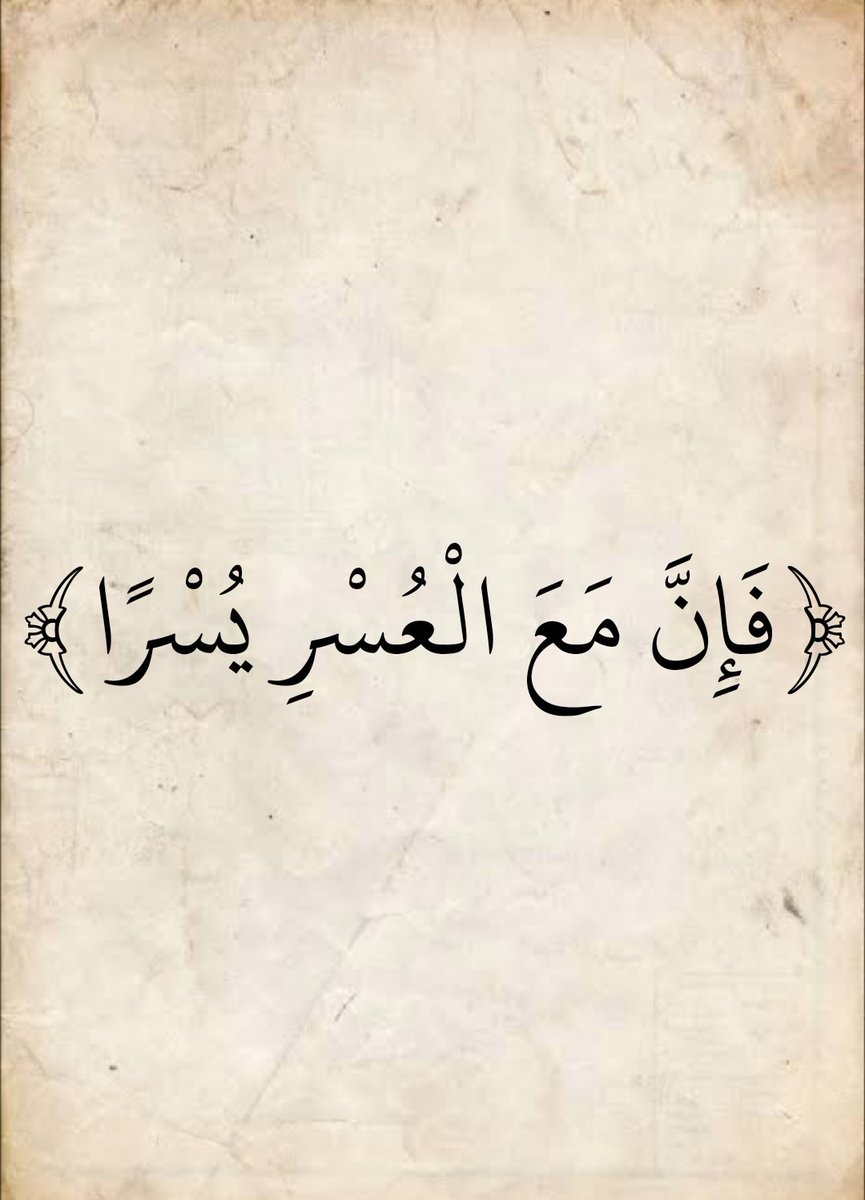 ﴿فَإِنَّ مَعَ الْعُسْرِ يُسْرًا﴾